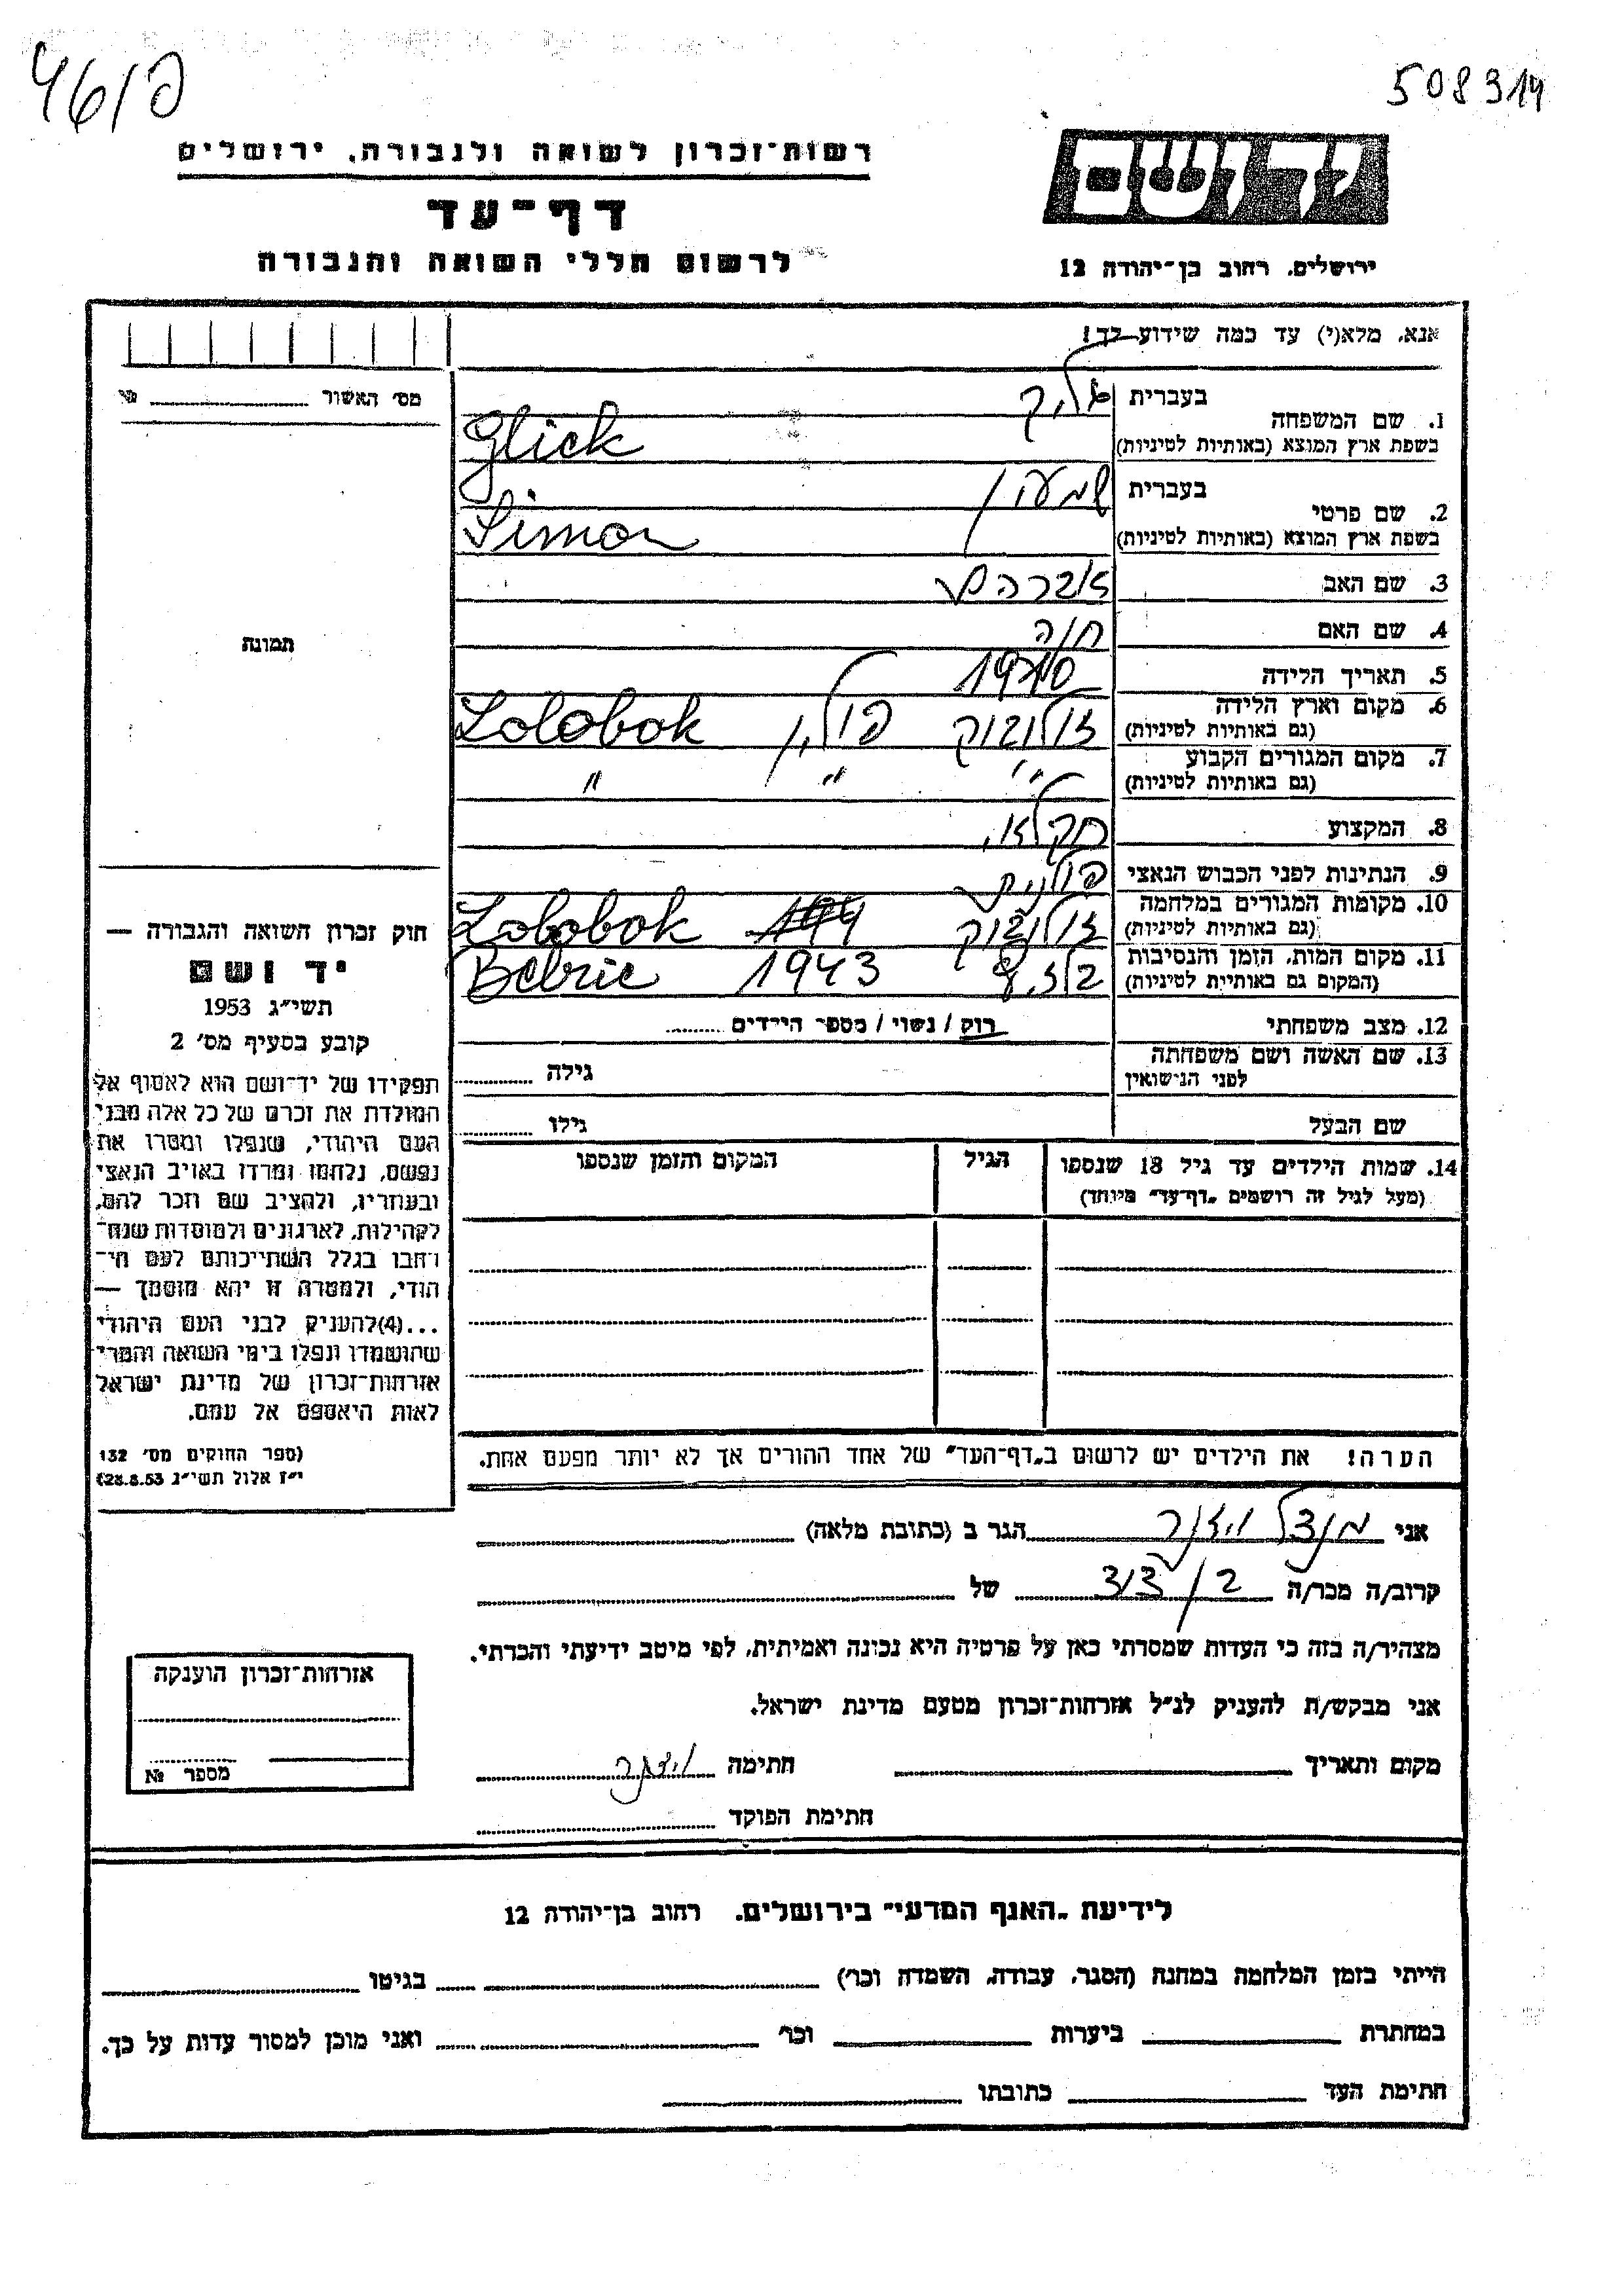 46/פ
508314
יד ושם
רשות־זכרון לשואה ולגבורה, ירושלים
דף־עד
לרשום חללי השואה והגבורה
ירושלים, רחוב בן־יהודה 12
אנא, מלא(י) עד כמה שידוע לך!
מס׳ האשור № ........
1. שם המשפחה
בעברית גליק
בשפת ארץ המוצא (באותיות לטיניות) Glick
2. שם פרטי
בעברית שמעון
בשפת ארץ המוצא (באותיות לטיניות) Simon
3. שם האב אברהם
4. שם האם חוה
5. תאריך הלידה 1910
6. מקום וארץ הלידה
(גם באותיות לטיניות) זולובוק פולין Lolobok
7. מקום המגורים הקבוע
(גם באותיות לטיניות) " " "
8. המקצוע חקלאי
9. הנתינות לפני הכבוש הנאצי פולנית
10. מקומות המגורים במלחמה
(גם באותיות לטיניות) זולובוק Lolobok
11. מקום המות, הזמן והנסיבות
(המקום גם באותיות לטיניות) 1943 Belzic
12. מצב משפחתי רוק / נשוי / מספר הילדים ........
13. שם האשה ושם משפחתה
לפני הנישואין
גילה ........
שם הבעל גילו ........
14. שמות הילדים עד גיל 18 שנספו הגיל המקום והזמן שנספו
(מעל לגיל זה רושמים „דף־עד״ מיוחד)
הערה! את הילדים יש לרשום ב„דף־העד״ של אחד ההורים אך לא יותר מפעם אחת.
תמונה
חוק זכרון השואה והגבורה —
יד ושם
תשי״ג 1953
קובע בסעיף מס׳ 2
תפקידו של יד־ושם הוא לאסוף אל
המולדת את זכרם של כל אלה מבני
העם היהודי, שנפלו ומסרו את
נפשם, נלחמו ומרדו באויב הנאצי
ובעוזריו, ולהציב שם וזכר להם,
לקהילות, לארגונים ולמוסדות שנח־
רבו בגלל השתייכותם לעם הי־
הודי, ולמטרה זו יהא מוסמך —
...(4)להעניק לבני העם היהודי
שהושמדו ונפלו בימי השואה והמרי
אזרחות־זכרון של מדינת ישראל
לאות היאספם אל עמם.
(ספר החוקים מס׳ 132
י״ז אלול תשי״ג 28.8.53)
אני מנדל ויזנר הגר ב (כתובת מלאה) ........
קרוב/ה מכר/ה בן דוד של ........
מצהיר/ה בזה כי העדות שמסרתי כאן על פרטיה היא נכונה ואמיתית, לפי מיטב ידיעתי והכרתי.
אני מבקש/ת להעניק לנ״ל אזרחות־זכרון מטעם מדינת ישראל.
מקום ותאריך ........ חתימה ויזנר
חתימת הפוקד ........
אזרחות־זכרון הוענקה
מספר №
לידיעת „האגף המדעי״ בירושלים, רחוב בן־יהודה 12
הייתי בזמן המלחמה במחנה (הסגר, עבודה, השמדה וכו׳) ........ בגיטו ........
במחתרת ........ ביערות ........ וכו׳ ........ ואני מוכן למסור עדות על כך.
חתימת העד ........ כתובתו ........